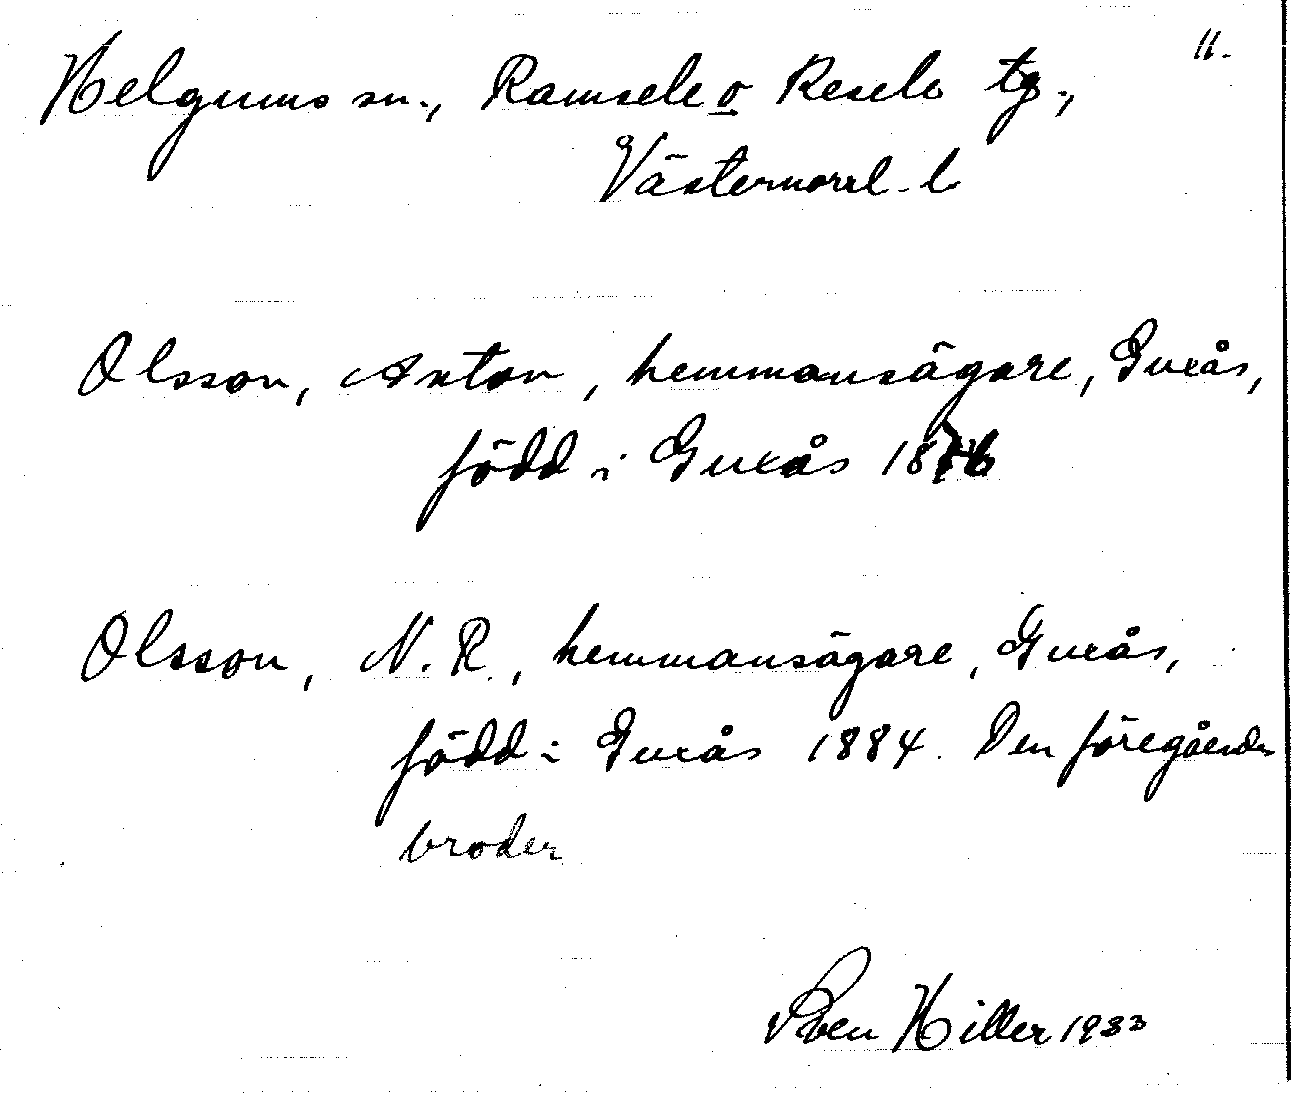 11.
Helgums sn., Ramsele o Resele tg.,
Västernorrl. l
Olsson, Anton, hemmansägare, Guxås,
född i Guxås 1876
Olsson, N. R., hemmansägare, Guxås,
född i Guxås 1884. Den föregåendes
broder
Sven Hiller 1933